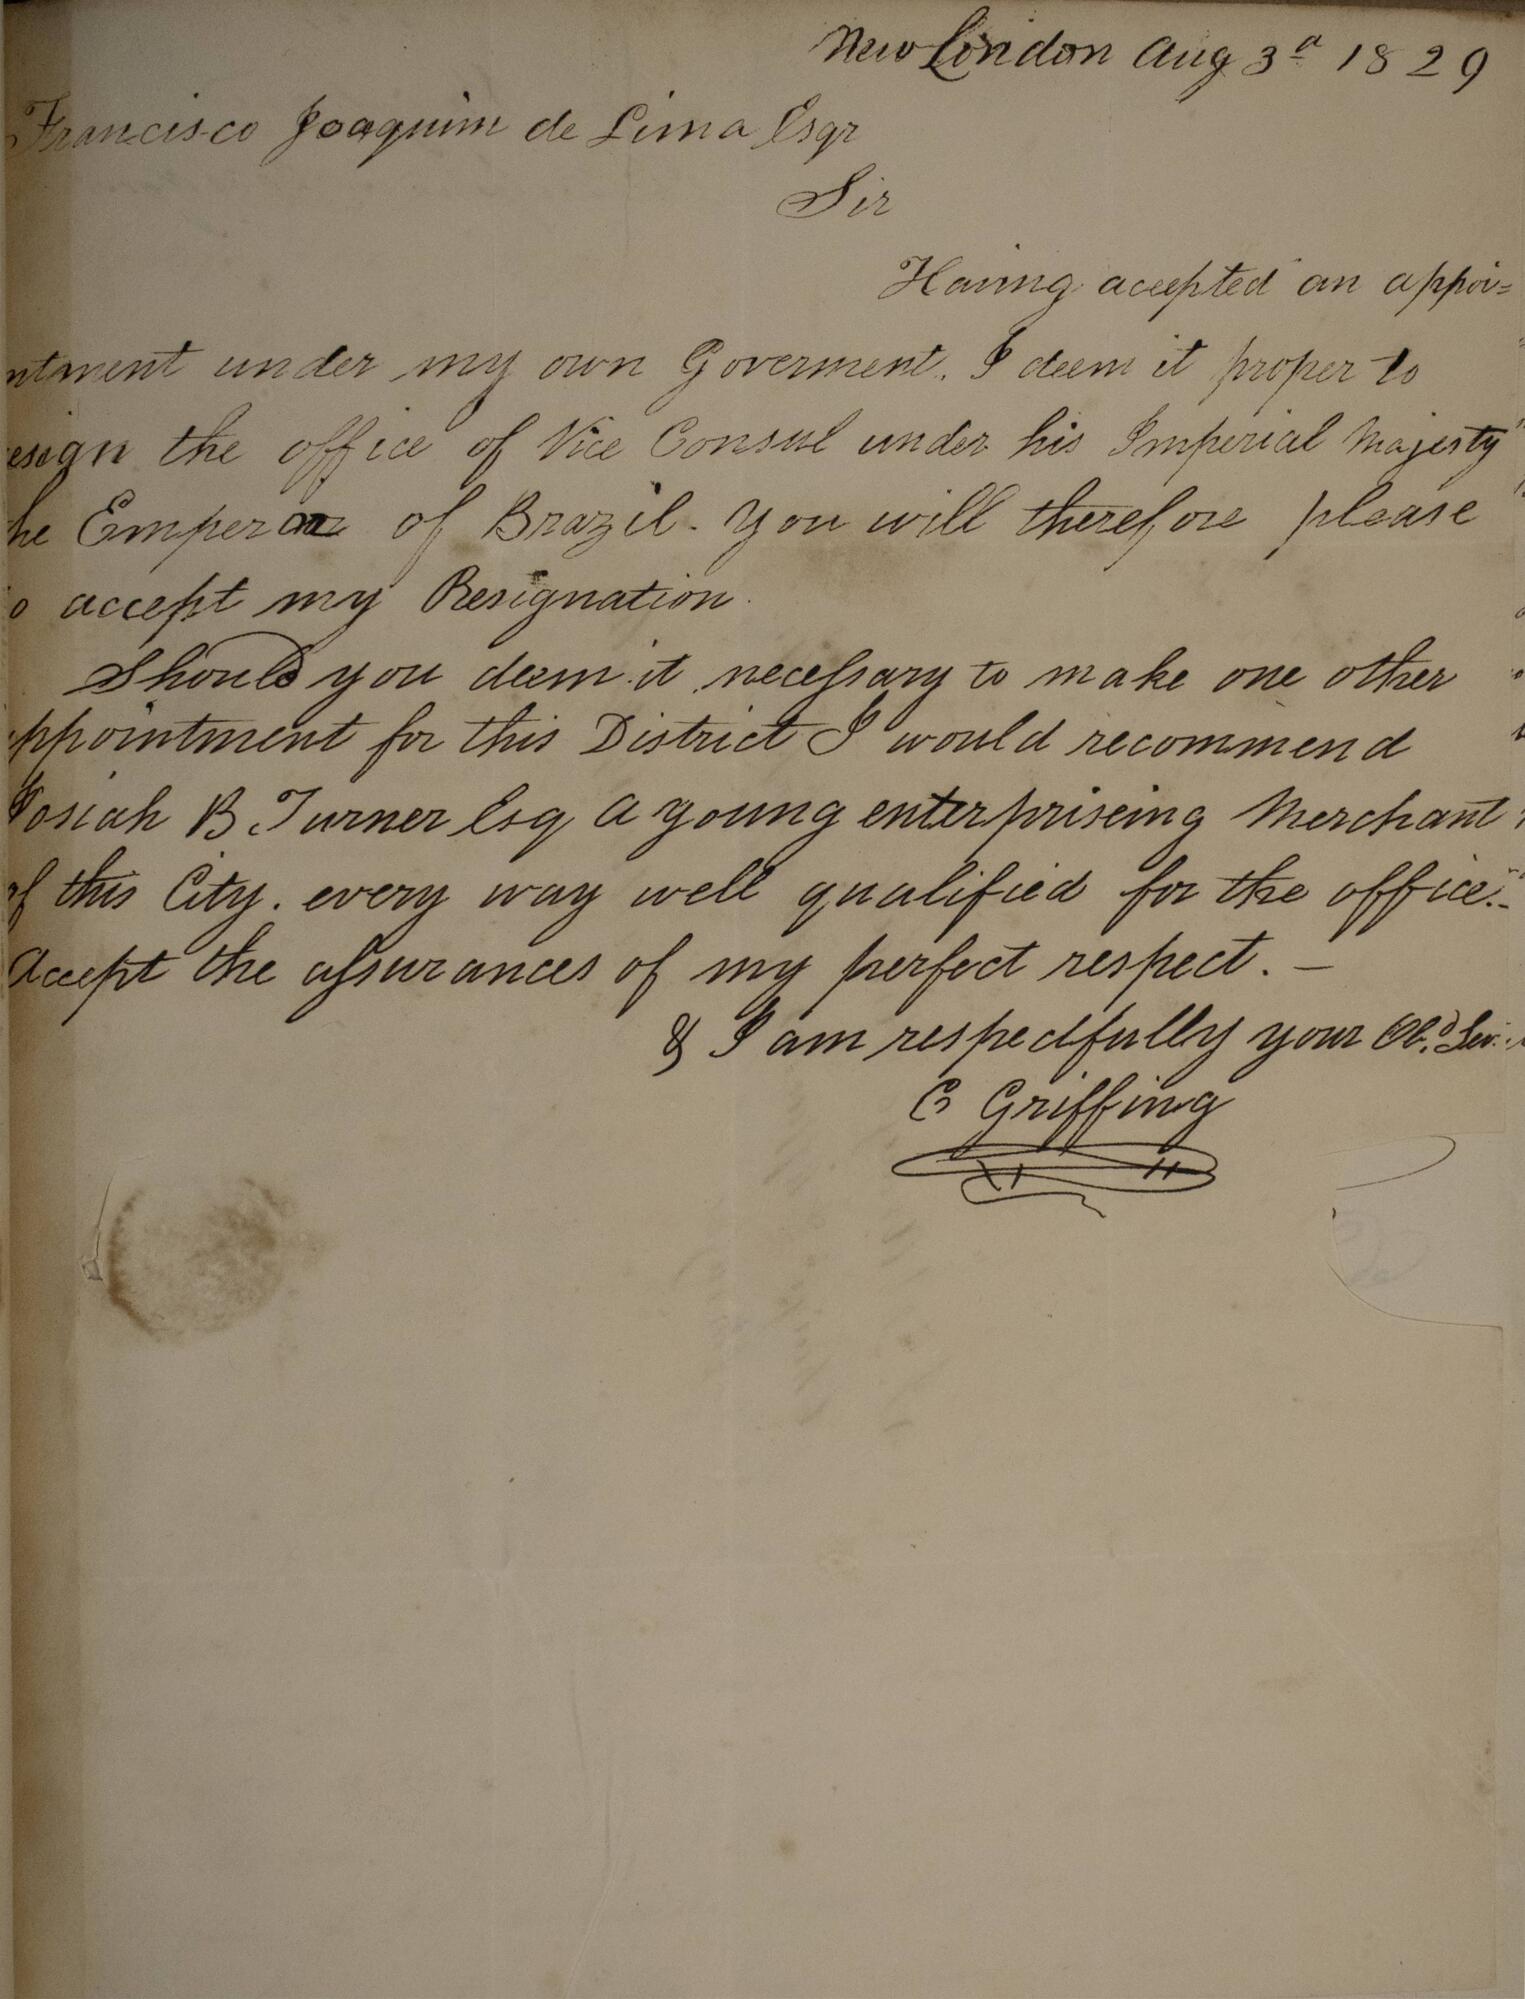 New London Aug 3d 1829
Francisco Joaquim de Lima Esqr
Sir
Having accepted an appoi=
ntment under my own Goverment. I deem it proper to
esign the office of Vice Consul under his Imperial Majesty
he Emperor of Brazil. You will therefore please
o accept my Resignation.
Should you deem it necessary to make one other
ppointment for this District I would recommend
Josiah B Turner Esq a young enterpriseing Merchant
of this City. every way well qualified for the office.
Accept the assurances of my perfect respect. —
& I am respectfully your Ob.d Ser.
C Griffing